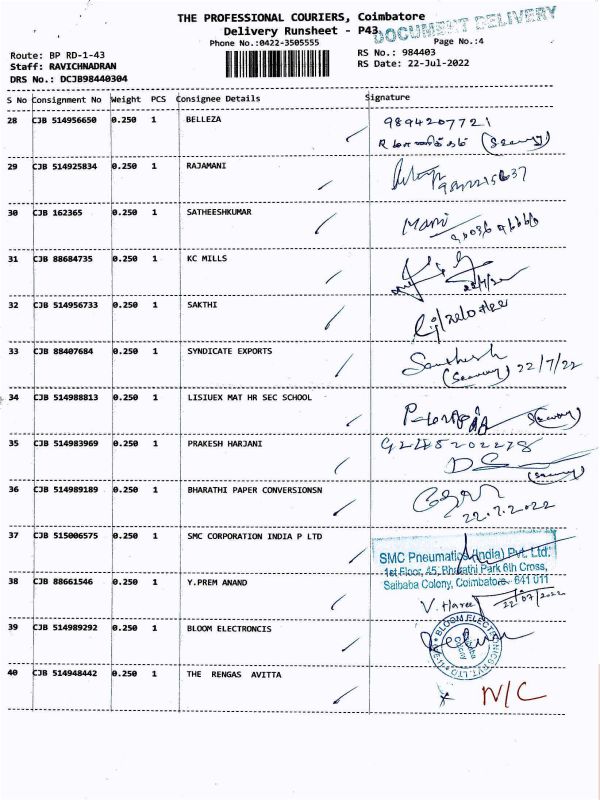 THE PROFESSIONAL COURIERS, Coimbatore
Delivery Runsheet - P43
DOCUMENT DELIVERY
Phone No.:0422-3505555
Page No.:4
Route: BP RD-1-43
RS No.: 984403
Staff: RAVICHNADRAN
RS Date: 22-Jul-2022
DRS No.: DCJB98440304
S No Consignment No Weight PCS Consignee Details Signature
28 CJB 514956650 0.250 1 BELLEZA 9894207721
29 CJB 514925834 0.250 1 RAJAMANI
30 CJB 162365 0.250 1 SATHEESHKUMAR Mani
31 CJB 88684735 0.250 1 KC MILLS
32 CJB 514956733 0.250 1 SAKTHI
33 CJB 88407684 0.250 1 SYNDICATE EXPORTS Santhosh
22/7/22
34 CJB 514988813 0.250 1 LISIUEX MAT HR SEC SCHOOL
35 CJB 514983969 0.250 1 PRAKESH HARJANI
36 CJB 514989189 0.250 1 BHARATHI PAPER CONVERSIONSN
22.7.2022
37 CJB 515006575 0.250 1 SMC CORPORATION INDIA P LTD
SMC Pneumatics (India) Pvt. Ltd.
1st Floor, 45, Bharathi Park 6th Cross,
Saibaba Colony, Coimbatore- 641 011
38 CJB 88661546 0.250 1 Y.PREM ANAND V. Haree 22/07/2022
39 CJB 514989292 0.250 1 BLOOM ELECTRONCIS
BLOOM ELECTRONICS PVT. LTD
40 CJB 514948442 0.250 1 THE RENGAS AVITTA N/C